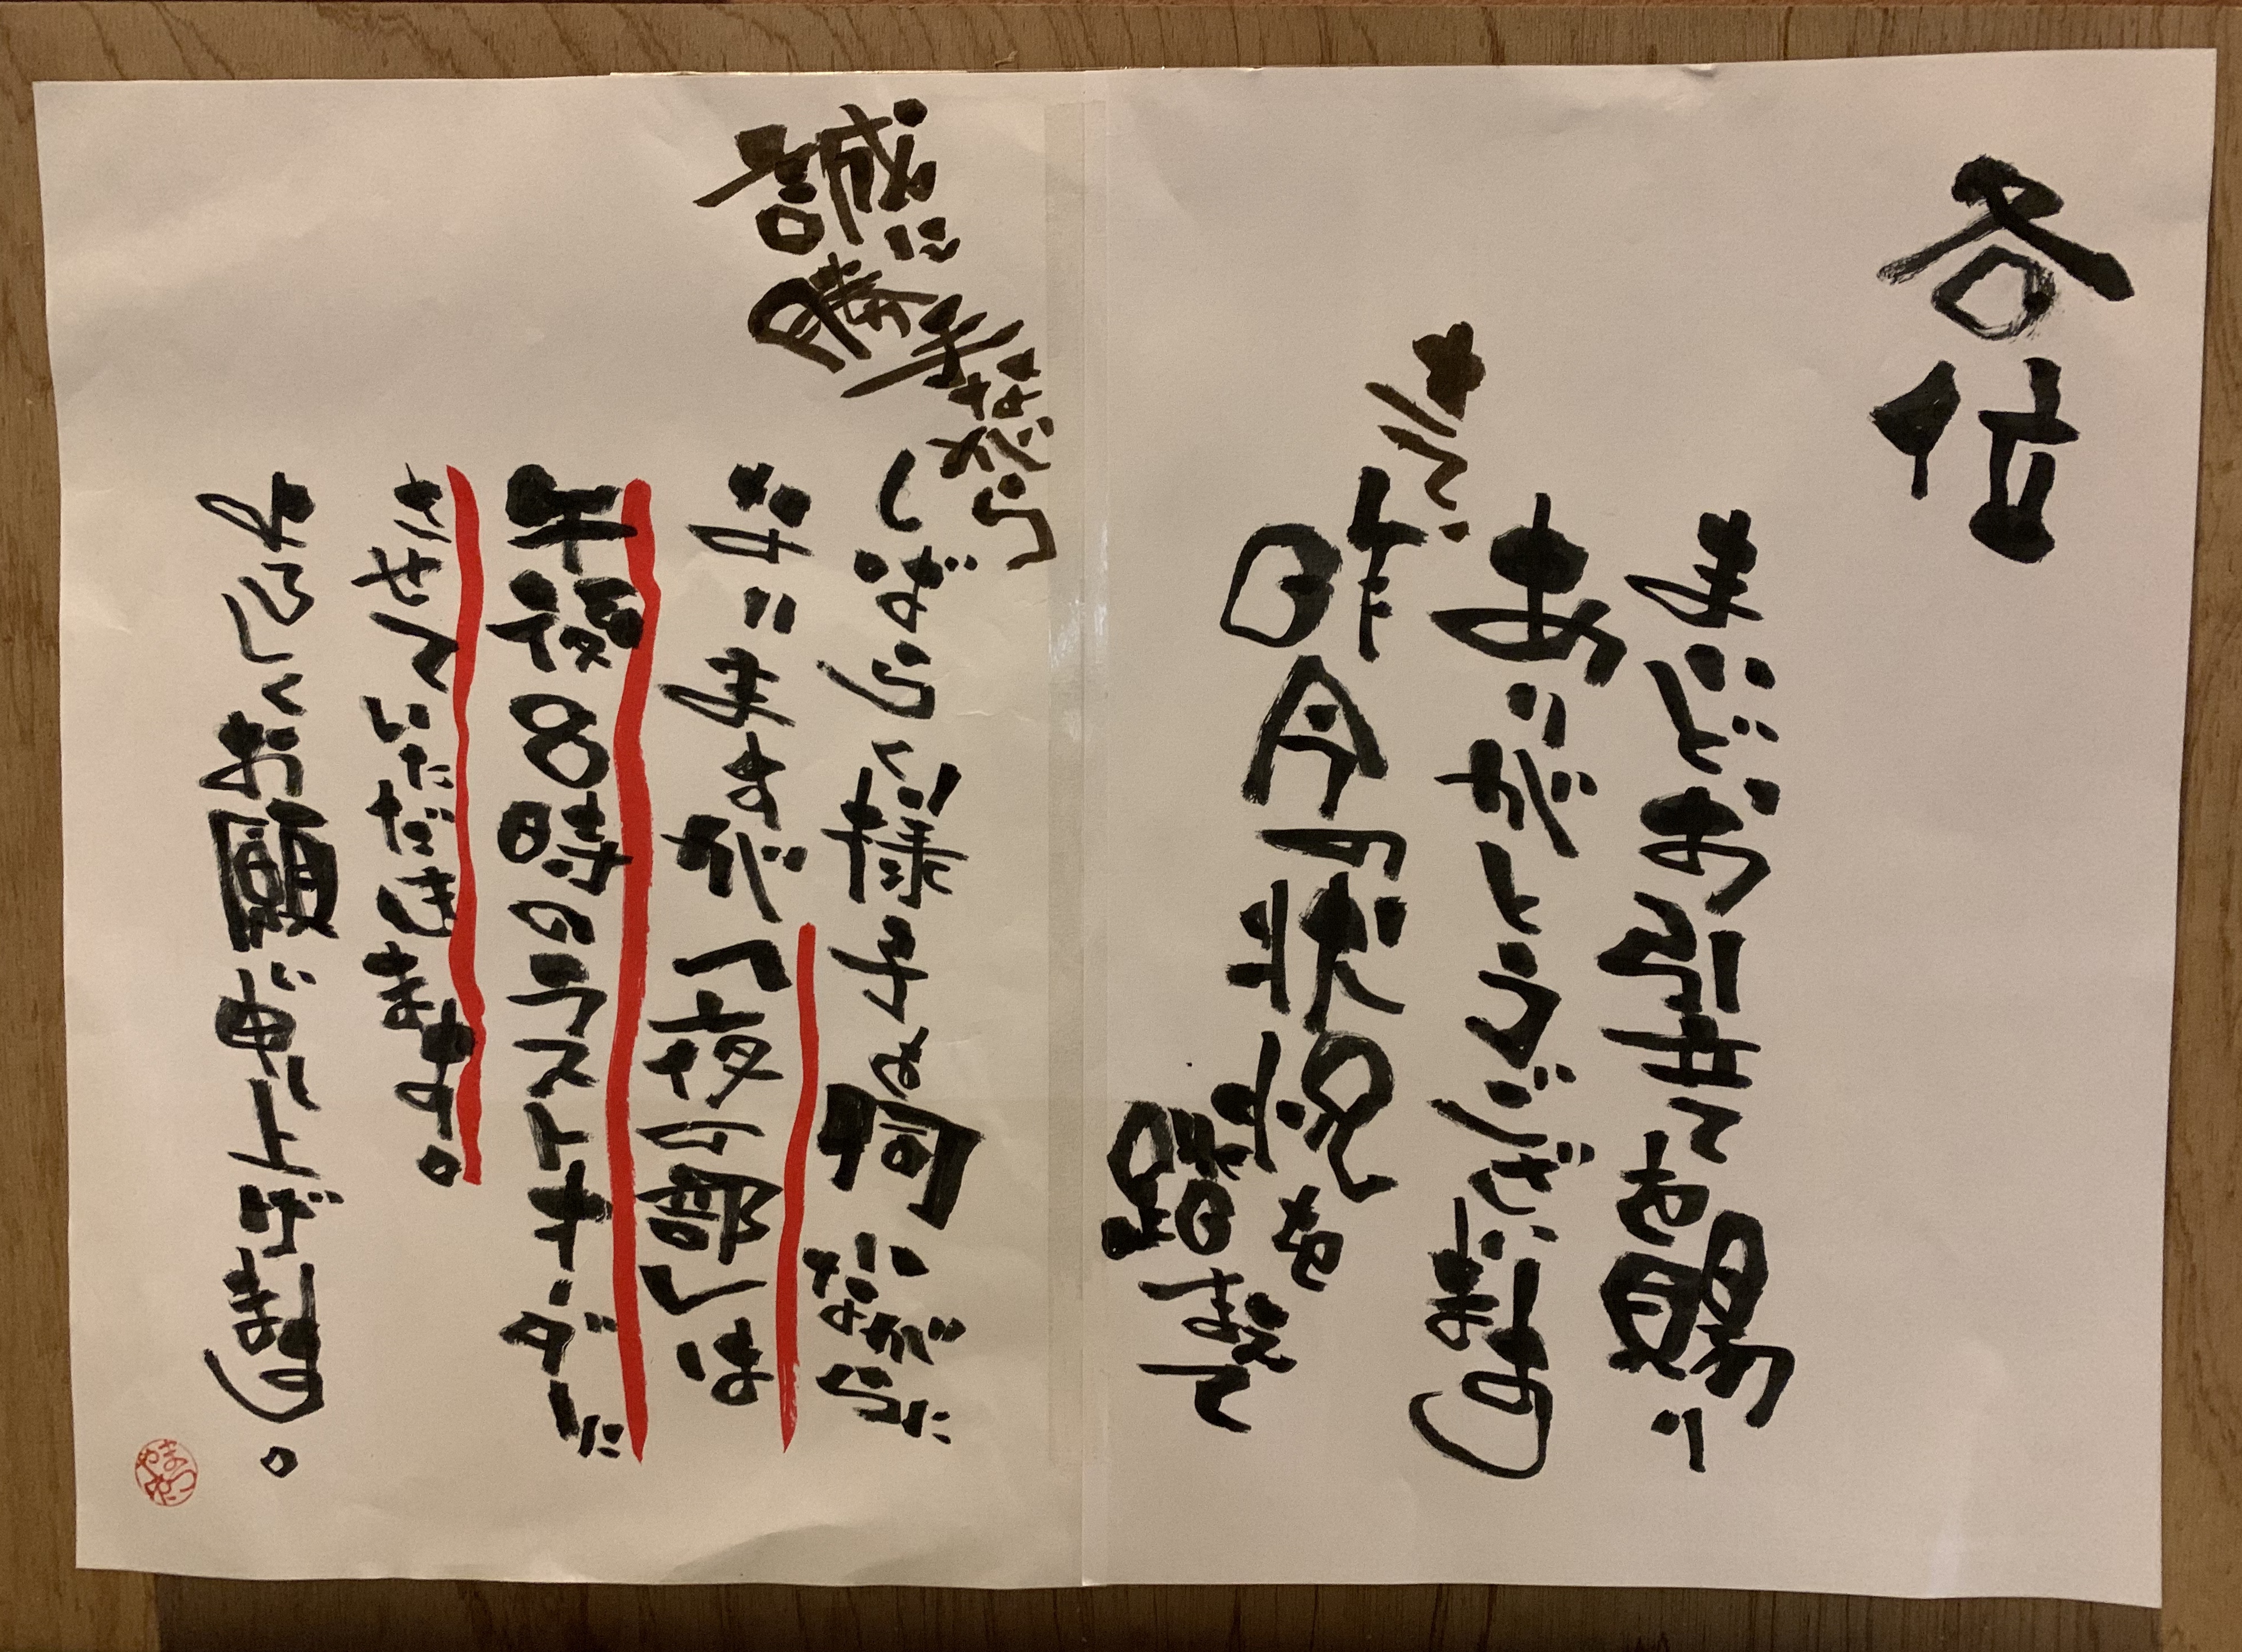 各位
まいどお引立てを賜り
ありがとうございます
さて、
昨今の状況を
踏まえて
誠に勝手ながら
しばらく様子を伺いながらに
なりますが「夜の部」は
午後8時のラストオーダーに
させていただきます。
よろしくお願い申し上げます。